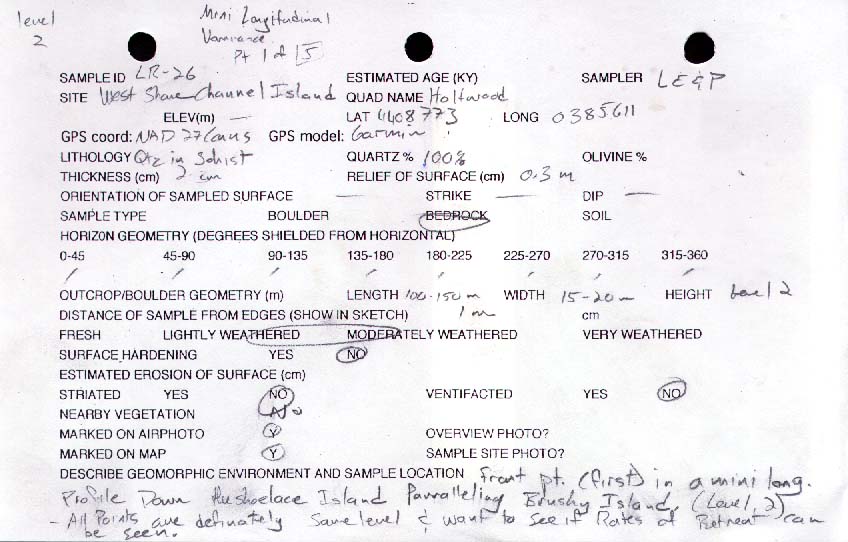 level
2
Mini Longitudinal
Variance
Pt 1 of 5
SAMPLE ID LR-26 ESTIMATED AGE (KY) SAMPLER LE&P
SITE West Shore Channel Island QUAD NAME Holtwood
ELEV(m) — LAT 4408773 LONG 0385611
GPS coord: NAD 27 Conus GPS model: Garmin
LITHOLOGY Qtz in Schist QUARTZ % 100% OLIVINE %
THICKNESS (cm) 2 cm RELIEF OF SURFACE (cm) 0.3 m
ORIENTATION OF SAMPLED SURFACE — STRIKE — DIP —
SAMPLE TYPE BOULDER BEDROCK SOIL
HORIZON GEOMETRY (DEGREES SHIELDED FROM HORIZONTAL)
0-45 45-90 90-135 135-180 180-225 225-270 270-315 315-360
OUTCROP/BOULDER GEOMETRY (m) LENGTH 100-150 m WIDTH 15-20 m HEIGHT level 2
DISTANCE OF SAMPLE FROM EDGES (SHOW IN SKETCH) 1 m cm
FRESH LIGHTLY WEATHERED MODERATELY WEATHERED VERY WEATHERED
SURFACE HARDENING YES NO
ESTIMATED EROSION OF SURFACE (cm)
STRIATED YES NO VENTIFACTED YES NO
NEARBY VEGETATION No
MARKED ON AIRPHOTO Y OVERVIEW PHOTO?
MARKED ON MAP Y SAMPLE SITE PHOTO?
DESCRIBE GEOMORPHIC ENVIRONMENT AND SAMPLE LOCATION Front pt. (first) in a mini long.
Profile Down the shoelace Island Parralleling Brushy Island. (Level 2)
- All Points are definately Same level & want to see if Rates of Retreat can
be seen.